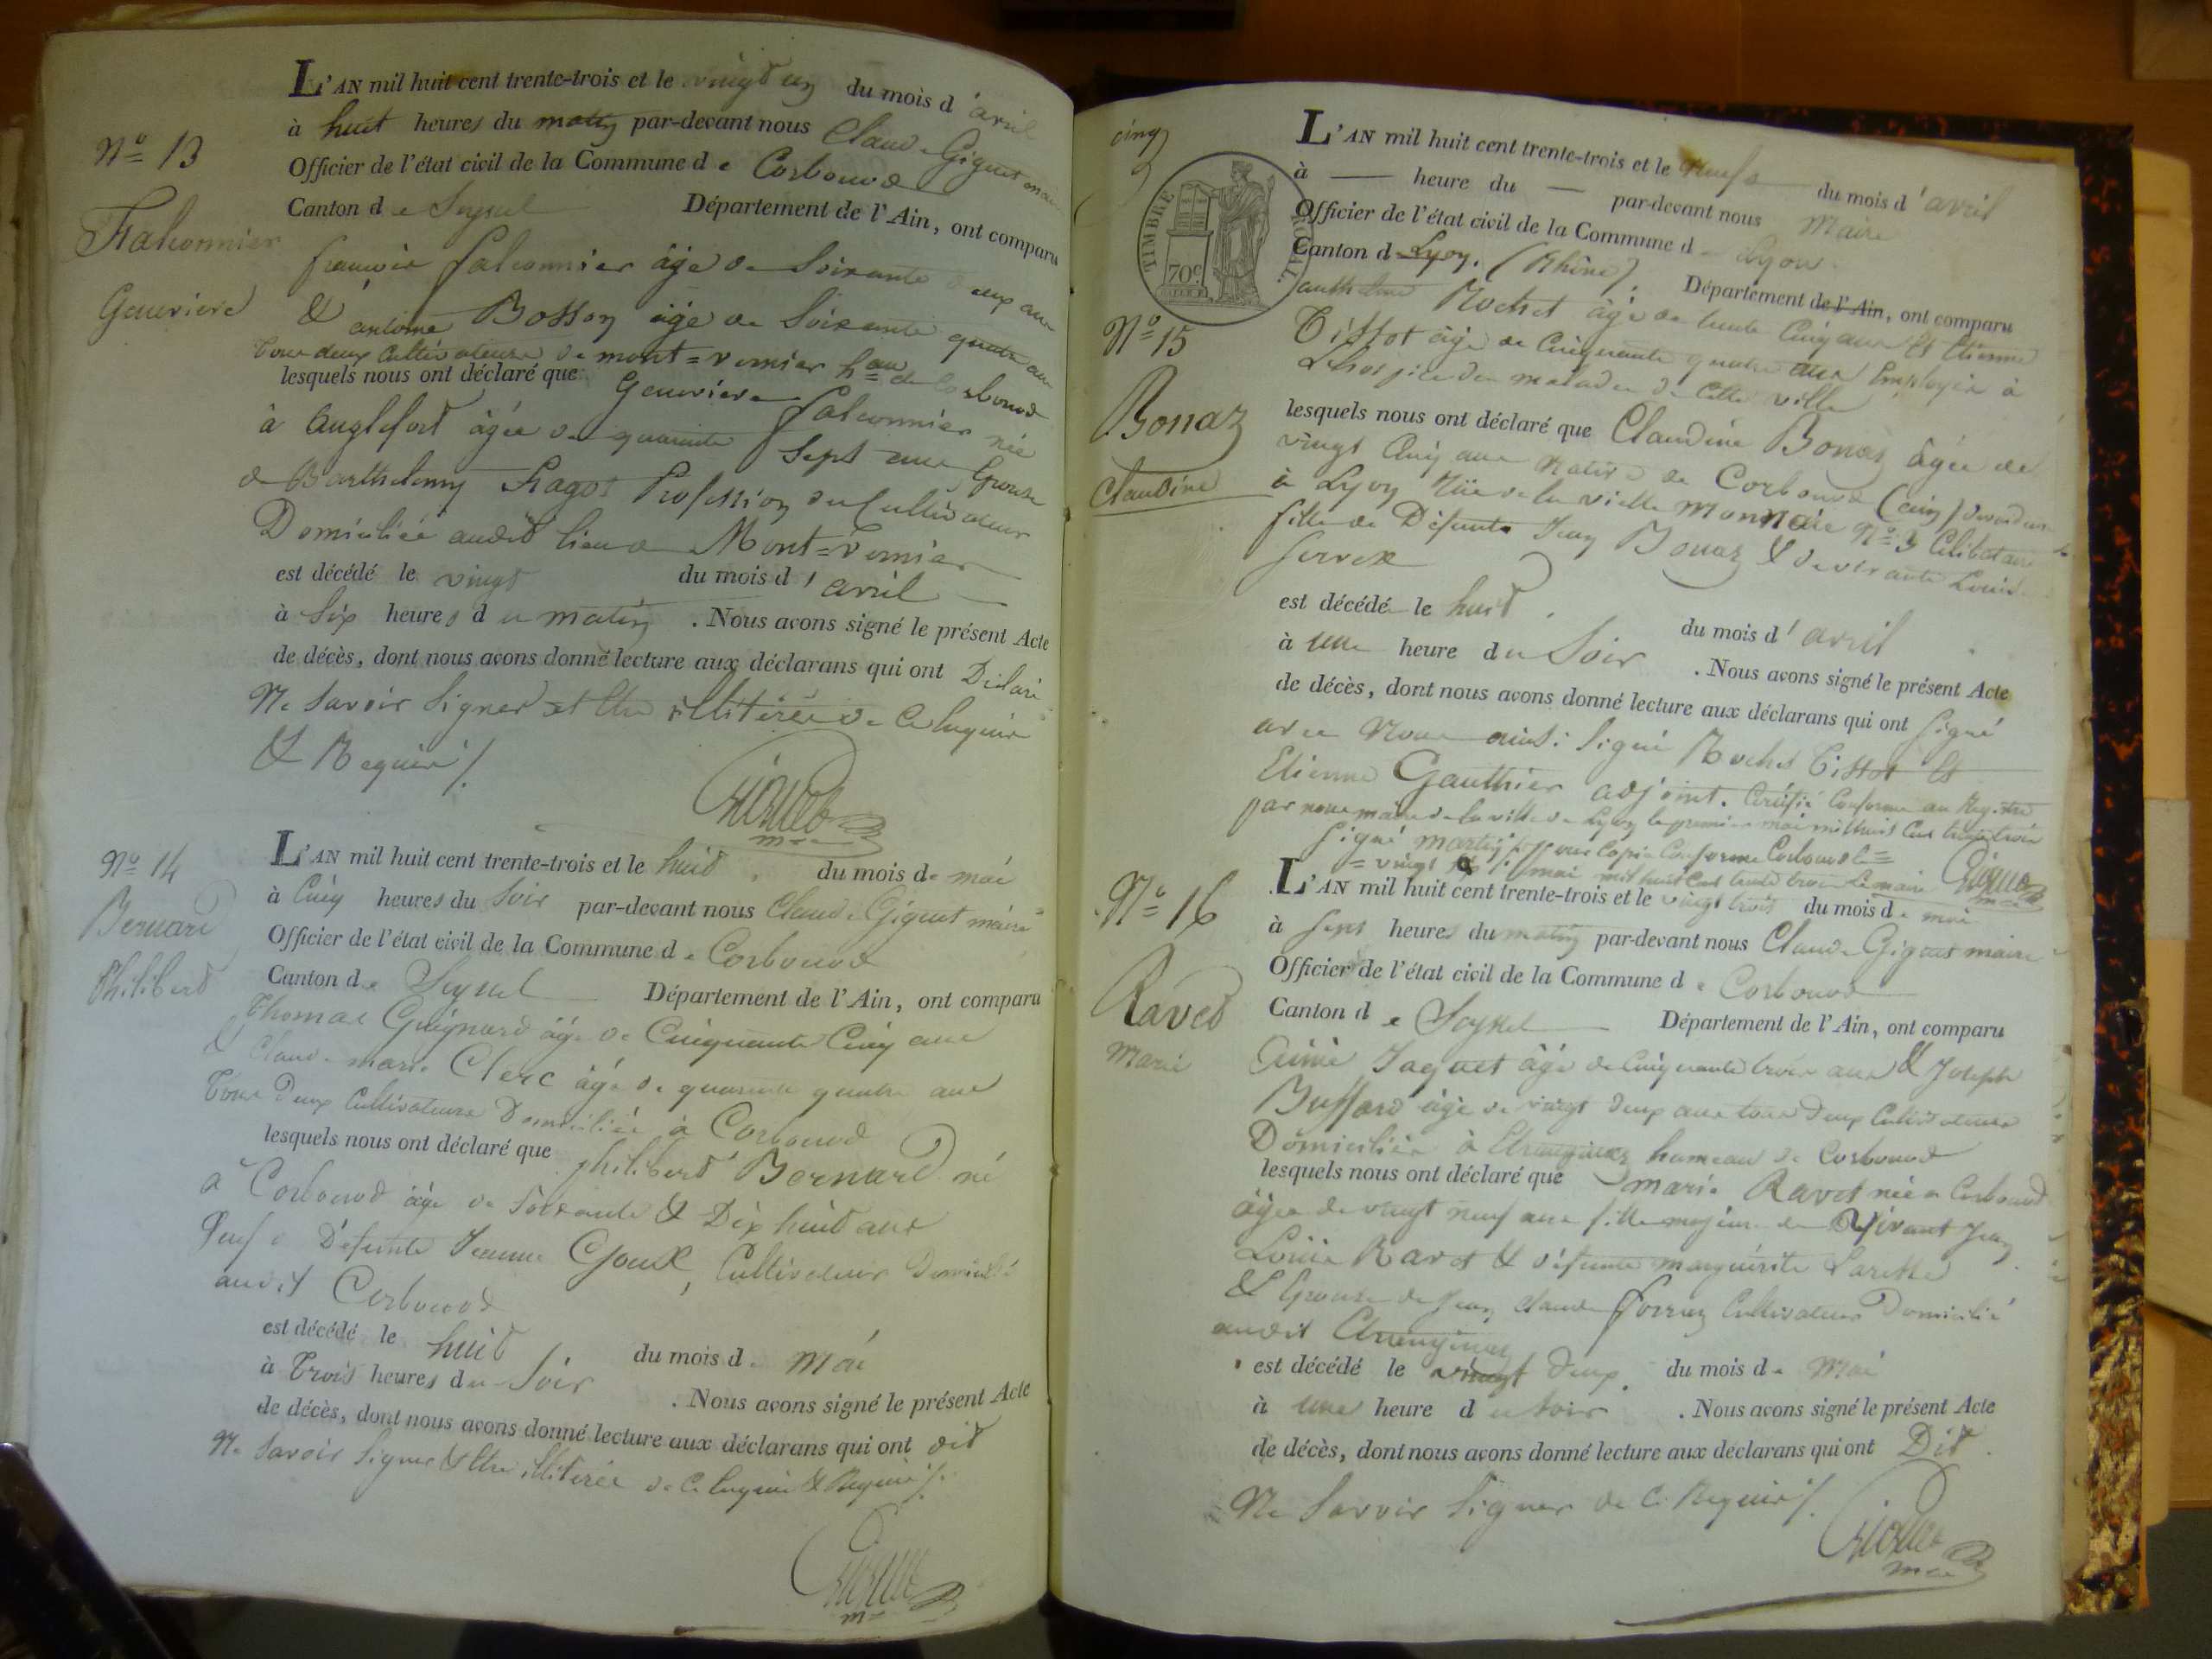 L'AN mil huit cent trente-trois et le vingt un du mois d'avril
à huit heures du matin par-devant nous Claude Giguet maire
N° 13
Officier de l'état civil de la Commune de Corbonod
Canton de Seyssel Département de l'Ain, ont comparu
Falconnier
françois falconnier âgé de soixante deux ans
Genevieve
& antoine Bosson âgé de soixante quatre ans
tous deux Cultivateurs de mont=vernier hau de Corbonod
lesquels nous ont déclaré que Genevieve falconnier née
à Anglefort âgée de quarante sept ans Epouse
de Barthelemy Ragot Profession de Cultivateur
Domiciliée audit lieu de Mont=vernier
est décédé le vingt du mois d'avril
à six heures du matin. Nous avons signé le présent Acte
de décès, dont nous avons donné lecture aux déclarans qui ont Déclaré
Ne savoir signer et être illitérés de ce enquis
& Requis /.
Giguet
m
N° 14
L'AN mil huit cent trente-trois et le huit du mois de mai
Bernard
à Cinq heures du soir par-devant nous Claude Giguet maire
Officier de l'état civil de la Commune de Corbonod
Philibert
Canton de Seyssel Département de l'Ain, ont comparu
Thomas Guignard âgé de Cinquante Cinq ans
& Claude marie Clerc âgé de quarante quatre ans
tous Deux Cultivateurs Domiciliés à Corbonod
lesquels nous ont déclaré que philibert Bernard né
à Corbonod âgé de soixante & Dix huit ans
veuf de Défunte Jeanne, Cultivateur Domicilié
audit Corbonod
est décédé le huit du mois de Mai
à Trois heures du soir. Nous avons signé le présent Acte
de décès, dont nous avons donné lecture aux déclarans qui ont dit
Ne savoir signer & être illitérés de ce enquis & Requis /.
Giguet
m
cinq
TIMBRE ROYAL
70c
L'AN mil huit cent trente-trois et le neuf du mois d'avril
à — heure du — par-devant nous Maire
Officier de l'état civil de la Commune de Lyon
Canton de Lyon. (Rhône). Département de l'Ain, ont comparu
N° 15
anthelme Rochet âgé de trente Cinq ans Et Etienne
Tissot âgé de Cinquante quatre ans Employés à
L'hospice des malades de Cette ville
Bonaz
lesquels nous ont déclaré que Claudine Bonaz âgée de
Claudine
vingt Cinq ans Native de Corbonod (ain) demeurant
à Lyon Rüe de la vielle Monnaie N° 3 Célibataire
fille de Défunts Jean Bonaz & de vivante Louise
Serrex
est décédé le huit du mois d'avril
à une heure du Soir. Nous avons signé le présent Acte
de décès, dont nous avons donné lecture aux déclarans qui ont signé
avec Nous ainsi signé Rochet Tissot Et
Etienne Gauthier adjoint. Certifié Conforme au Registre
par nous maire de la ville de Lyon le premier mai mil huit Cent trente trois
signé martin pour Copie Conforme Corbonod le
vingt mai mil huit Cent trente trois Le maire Giguet
N° 16
L'AN mil huit cent trente-trois et le vingt trois du mois de mai
à sept heures du matin par-devant nous Claude Giguet maire
Officier de l'état civil de la Commune de Corbonod
Ravet
Canton de Seyssel Département de l'Ain, ont comparu
Marie
Aimé Jaquet âgé de Cinquante trois ans & Joseph
Buffard âgé de vingt deux ans tous deux Cultivateurs
Domiciliés à Etranginaz hameau de Corbonod
lesquels nous ont déclaré que marie Ravet née à Corbonod
âgée de vingt neuf ans fille majeure de vivant Jean
Louis Ravet & défunte marguérite
& Epouse de Jean Claude Cultivateur Domicilié
audit Etranginaz
est décédé le vingt Deux du mois de Mai
à une heure du soir. Nous avons signé le présent Acte
de décès, dont nous avons donné lecture aux déclarans qui ont Dit
Ne Savoir Signer de Ce Requis /.
Giguet
m